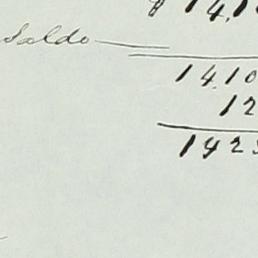 $ 14,1
Saldo
14,10
12
1423